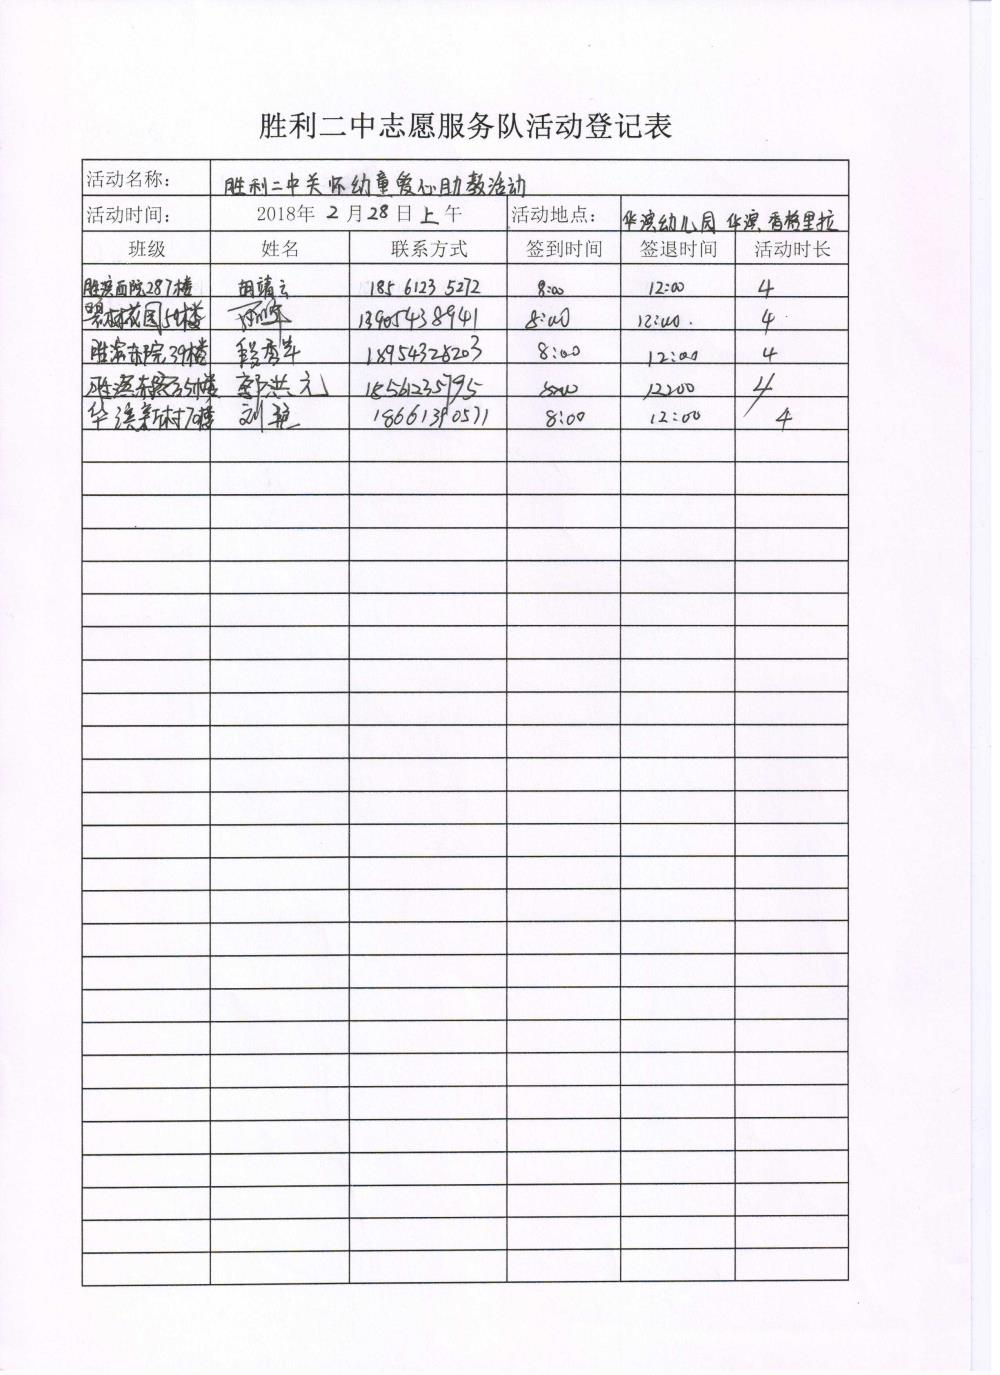 胜利二中志愿服务队活动登记表
活动名称： 胜利二中关怀幼童爱心助教活动
活动时间： 2018年 2 月 28 日 上 午 活动地点： 华滨幼儿园 华滨 香格里拉
班级 姓名 联系方式 签到时间 签退时间 活动时长
胜滨西院287楼 胡靖云 185 6123 5272 8:00 12:00 4
碧林花园50楼 13905438941 8:00 12:00. 4
胜滨东院39楼 程秀华 18954328203 8:00 12:00 4
胜滨东院35楼 郭洪元 18561235795 8:00 12:00 4
华滨新村70楼 刘艳 18661390571 8:00 12:00 4